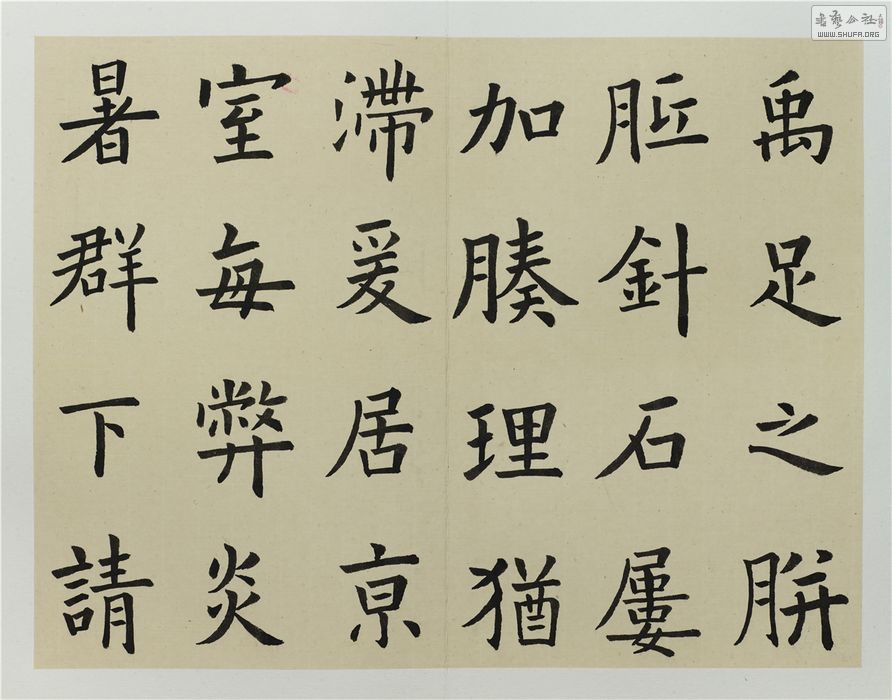 禹足之胼
胝針石屢
加腠理猶
滯爰居亰
室每弊炎
暑群下請
WWW.SHUFA.ORG